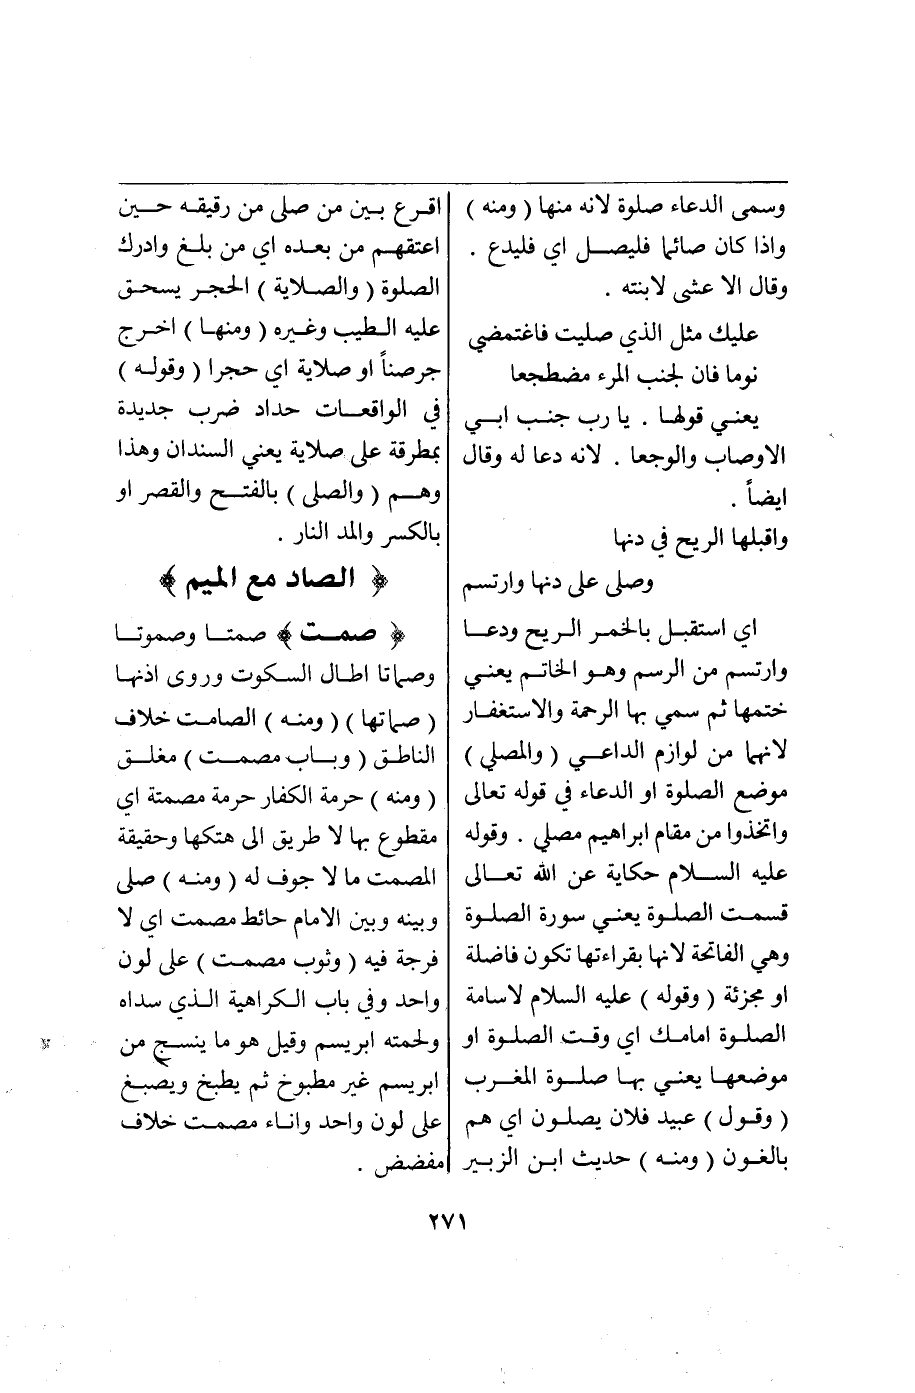 وسمى الدعاء صلوة لانه منها ( ومنه )
واذا كان صائما فليصل اي فليدع .
وقال الا عشى لابنته .
عليك مثل الذي صليت فاغتمضي
نوما فان لجنب المرء مضطجعا
يعني قولها . يا رب جنب ابي
الاوصاب والوجعا . لانه دعا له وقال
ايضاً .
واقبلها الريح في دنها
وصلى على دنها وارتسم
اي استقبل بالخمر الريح ودعا
وارتسم من الرسم وهو الخاتم يعني
ختمها ثم سمي بها الرحمة والاستغفار
لانها من لوازم الداعي ( والمصلي )
موضع الصلوة او الدعاء في قوله تعالى
واتخذوا من مقام ابراهيم مصلى . وقوله
عليه السلام حكاية عن الله تعالى
قسمت الصلوة يعني سورة الصلوة
وهي الفاتحة لانها بقراءتها تكون فاضلة
او مجزئة ( وقوله ) عليه السلام لاسامة
الصلوة امامك اي وقت الصلوة او
موضعها يعني بها صلوة المغرب
( وقول ) عبيد فلان يصلون اي هم
بالغون ( ومنه ) حديث ابن الزبير
اقرع بين من صلى من رقيقه حين
اعتقهم من بعده اي من بلغ وادرك
الصلوة ( والصلاية ) الحجر يسحق
عليه الطيب وغيره ( ومنها ) اخرج
جرصناً او صلاية اي حجرا ( وقوله )
في الواقعات حداد ضرب جديدة
بمطرقة على صلاية يعني السندان وهذا
وهم ( والصلى ) بالفتح والقصر او
بالكسر والمد النار .
﴿ الصاد مع الميم ﴾
﴿ صمت ﴾ صمتا وصموتا
وصماتا اطال السكوت وروى اذنها
( صماتها ) ( ومنه ) الصامت خلاف
الناطق ( وباب مصمت ) مغلق
( ومنه ) حرمة الكفار حرمة مصمتة اي
مقطوع بها لا طريق الى هتكها وحقيقة
المصمت ما لا جوف له ( ومنه ) صلى
وبينه وبين الامام حائط مصمت اي لا
فرجة فيه ( وثوب مصمت ) على لون
واحد وفي باب الكراهية الذي سداه
ولحمته ابريسم وقيل هو ما ينسج من
ابريسم غير مطبوخ ثم يطبخ ويصبغ
على لون واحد واناء مصمت خلاف
مفضض .
٢٧١